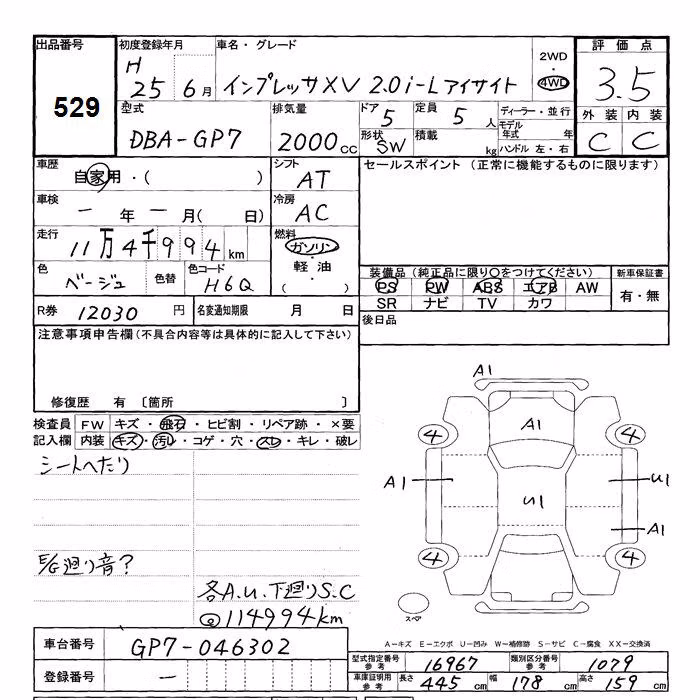 出品番号 初度登録年月 車名・グレード 2WD ・ 4WD 評価点
529 H 25 6月 インプレッサXV 2.0i-Lアイサイト 3.5
型式 排気量 ドア 定員 ディーラー・並行 外装 内装
DBA-GP7 2000cc 5 5人 モデル年式 年 C C
形状 SW 積載 kg ハンドル 左・右
車歴 自家用・( ) シフト AT セールスポイント (正常に機能するものに限ります)
車検 ー年ー月( 日) 冷房 AC
走行 11万4千994km 燃料 ガソリン・軽油・( )
色 ベージュ 色替 色コード H6Q
装備品 (純正品に限り○をつけてください) 新車保証書
PS PW ABS エアB AW 有・無
SR ナビ TV カワ
R券 12030円 名変通知期限 月 日 後日品
注意事項申告欄(不具合内容等は具体的に記入して下さい)
修復歴 有 〔箇所 〕
検査員 FW キズ・飛石・ヒビ割・リペア跡・×要
記入欄 内装 キズ・汚レ・コゲ・穴・スレ・キレ・破レ
シートへたり
E/G廻り音?
各A.U.下廻りS.C
@114994km
A1
4 A1 4
A1 U1 U1
A1
4 4
スペア
A－キズ E－エクボ U－凹み W－補修跡 S－サビ C－腐食 XX－交換済
車台番号 GP7-046302
型式指定番号 参考 16967 類別区分番号 参考 1079
登録番号 ー
車庫証明用 参考 長さ 445cm 幅 178cm 高さ 159cm